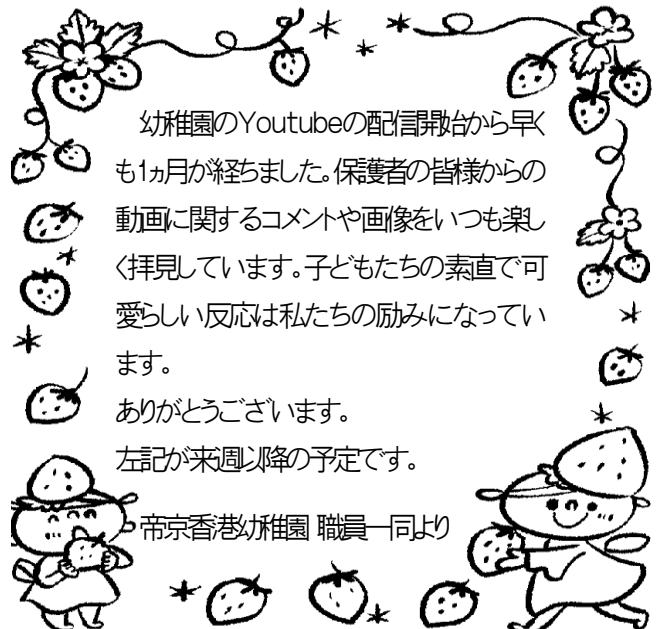 幼稚園のYoutubeの配信開始から早く
も1ヵ月が経ちました。保護者の皆様からの
動画に関するコメントや画像をいつも楽し
く拝見しています。子どもたちの素直で可
愛らしい反応は私たちの励みになってい
ます。
ありがとうございます。
左記が来週以降の予定です。
帝京香港幼稚園 職員一同より